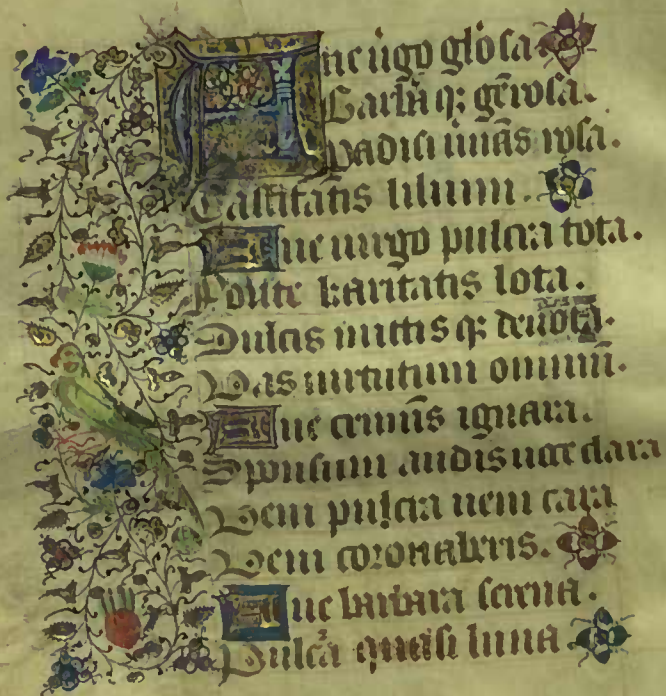 Aue uirgo glosa
Barbãq; gẽrosa.
Padisi uirnãs rosa.
Castitatis lilium.
Aue uirgo pulcra tota.
Fonte karitatis lota.
Dulcis mittis q; deuota.
Vas uirtutum omniũ.
Aue criminis ignara.
Sponsum audis uoce clara
Veni pulcra ueni cara
Veni coronaberis.
Aue barbara serena.
Pulcã quasi luna